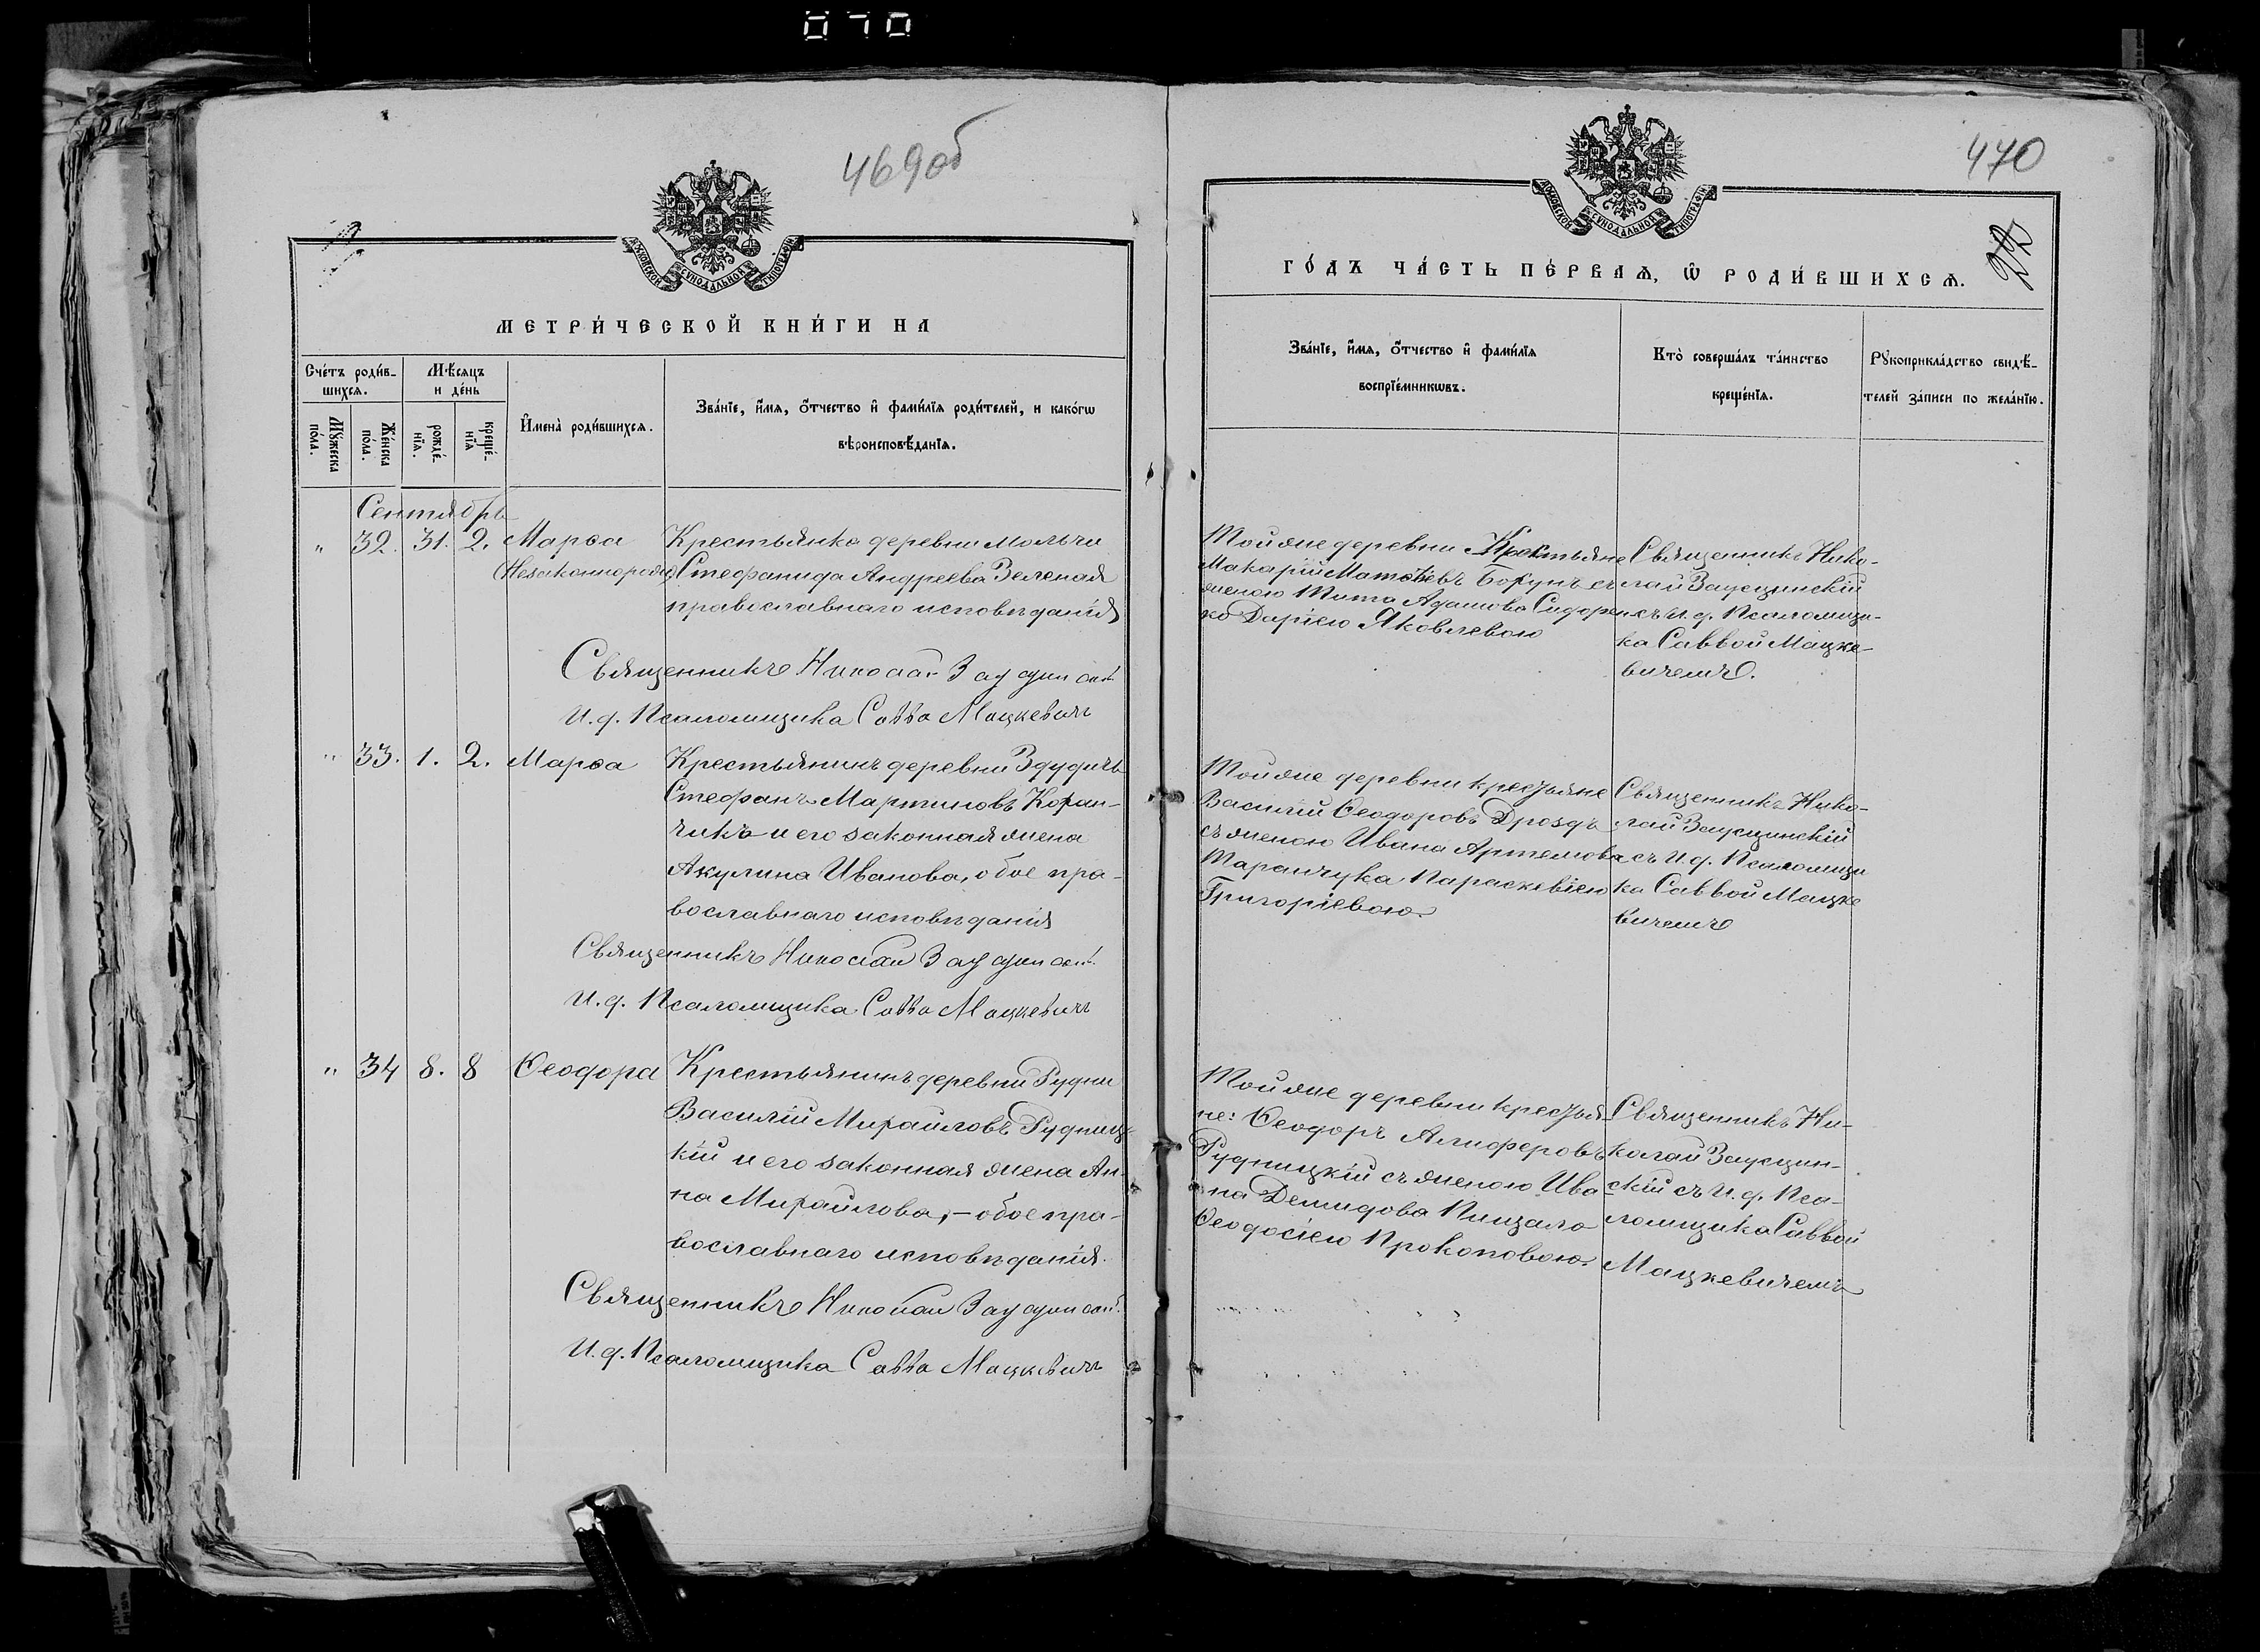 070
469об
МОСКОВСКОЙ СѴНОДАЛЬНОЙ ТИПОГРАФІИ
МЕТРИ́ЧЕСКОЙ КНИ́ГИ НА
Сче́тъ роди́в-
шихсѧ.
Мѣ́сѧцъ
и де́нь
Мꙋ́жеска по́ла.
Же́нска по́ла.
рожде́-
нїѧ.
креще́-
нїѧ
И҆мена̀ роди́вшихсѧ.
Зва́нїе, и҆́мѧ, ѻ҆́тчество и҆ фами́лїѧ роди́телей, и како́гѡ
вѣроисповѣ́данїѧ.
Сентябрь
" 32. 31. 2. Марѳа
(Незаконнорожд)
Крестьянка деревни Мольчи
Стефанида Андреева Зеленая
православнаго исповѣданія
Священникъ Николай Заусцинскій
И. д. Псаломщика Савва Мацкевичъ
" 33. 1. 2. Марѳа
Крестьянинъ деревни Здудичъ
Стефанъ Мартиновъ Коран-
чикъ и его законная жена
Акулина Иванова, обое пра-
вославнаго исповѣданія
Священникъ Николай Заусцинскій
И. д. Псаломщика Савва Мацкевичъ
" 34 8. 8 Ѳеодора
Крестьянинъ деревни Рудни
Василій Михайловъ Рудниц-
кій и его законная жена Ан-
на Михайлова, – обое пра-
вославнаго исповѣданія.
Священникъ Николай Заусцинскій
И. д. Псаломщика Савва Мацкевичъ
470
22
МОСКОВСКОЙ СѴНОДАЛЬНОЙ ТИПОГРАФІИ
ГО́ДЪ ЧА́СТЬ ПЕ́РВАѦ, Ѡ҆ РОДИ́ВШИХСѦ.
Зва́нїе, и҆́мѧ, ѻ҆́тчество и҆ фами́лїѧ
воспрїе́мникѡвъ.
Кто̀ соверша́лъ та́инство
креще́нїѧ.
Рꙋкоприкла́дство свидѣ́-
телей за́писи по жела́нїю.
Той же деревни Крестьяне
Макарій Матвѣевъ Бохунъ съ
женою Тита Адамова Сидорен-
ко Даріею Яковлевою
Священникъ Нико-
лай Заусцинскій
съ И. д. Псаломщи-
ка Саввой Мацке-
вичемъ.
Той же деревни крестьяне
Василій Ѳеодоровъ Дроздъ
съ женою Ивана Артемова
Таранчука Параскевіею
Григоріевою.
Священникъ Нико-
лай Заусцинскій
съ И. д. Псаломщи
ка Саввой Мацке
вичемъ
Той же деревни крестья-
не: Ѳеодоръ Алиферовъ
Рудницкій съ женою Ива
на Демидова Пищало
Ѳеодосіею Прокоповою.
Священникъ Ни-
колай Заусцин-
скій съ И. д. Пса-
ломщика Саввой
Мацкевичемъ